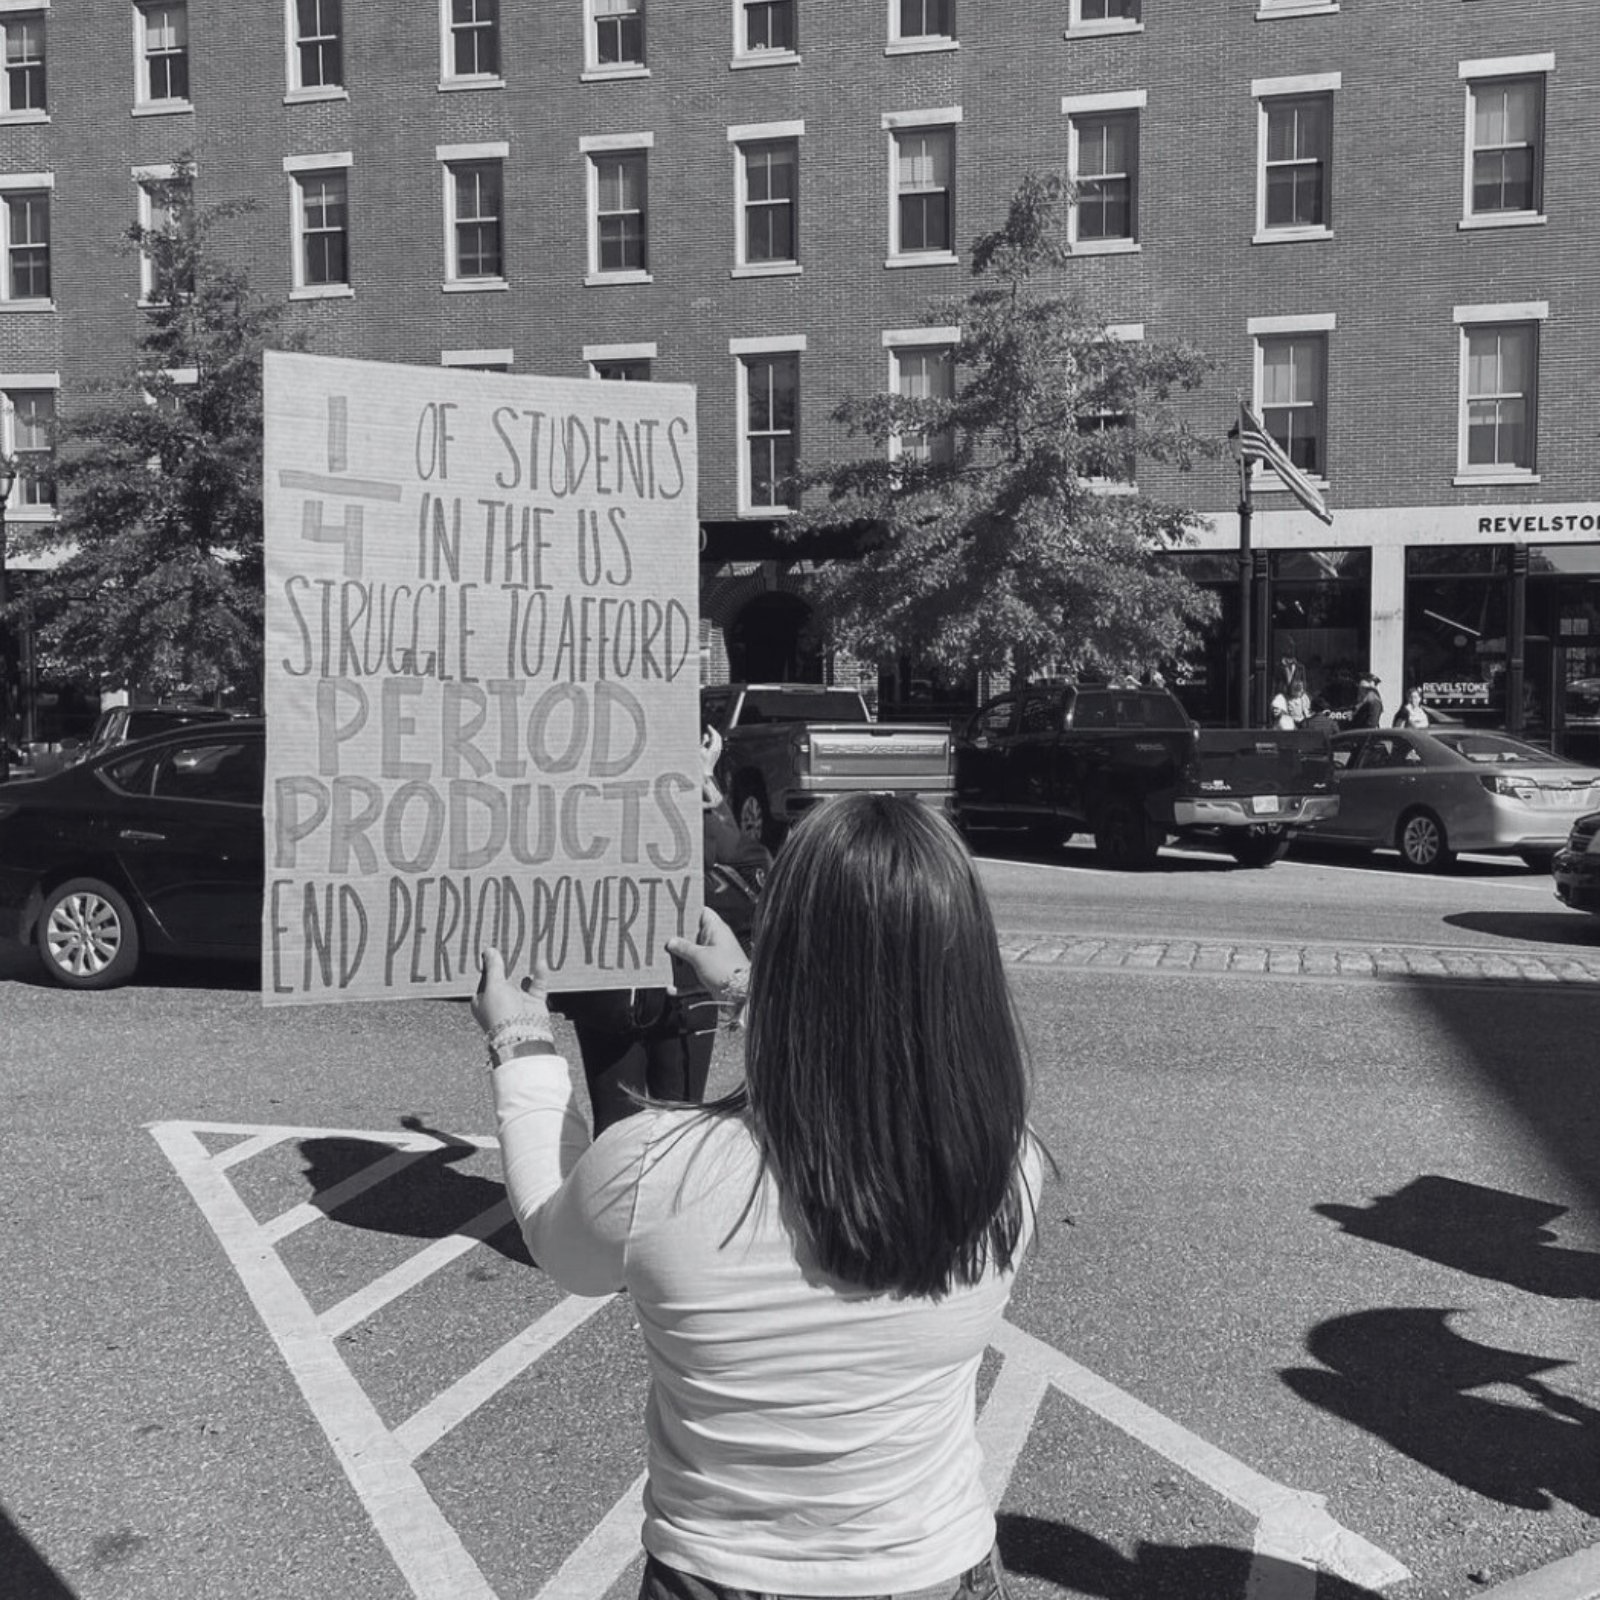 1/4 OF STUDENTS
IN THE US
STRUGGLE TO AFFORD
PERIOD
PRODUCTS
END PERIOD POVERTY
REVELSTO
REVELSTOKE
COFFEE
CHEVROLET
TUNDRA